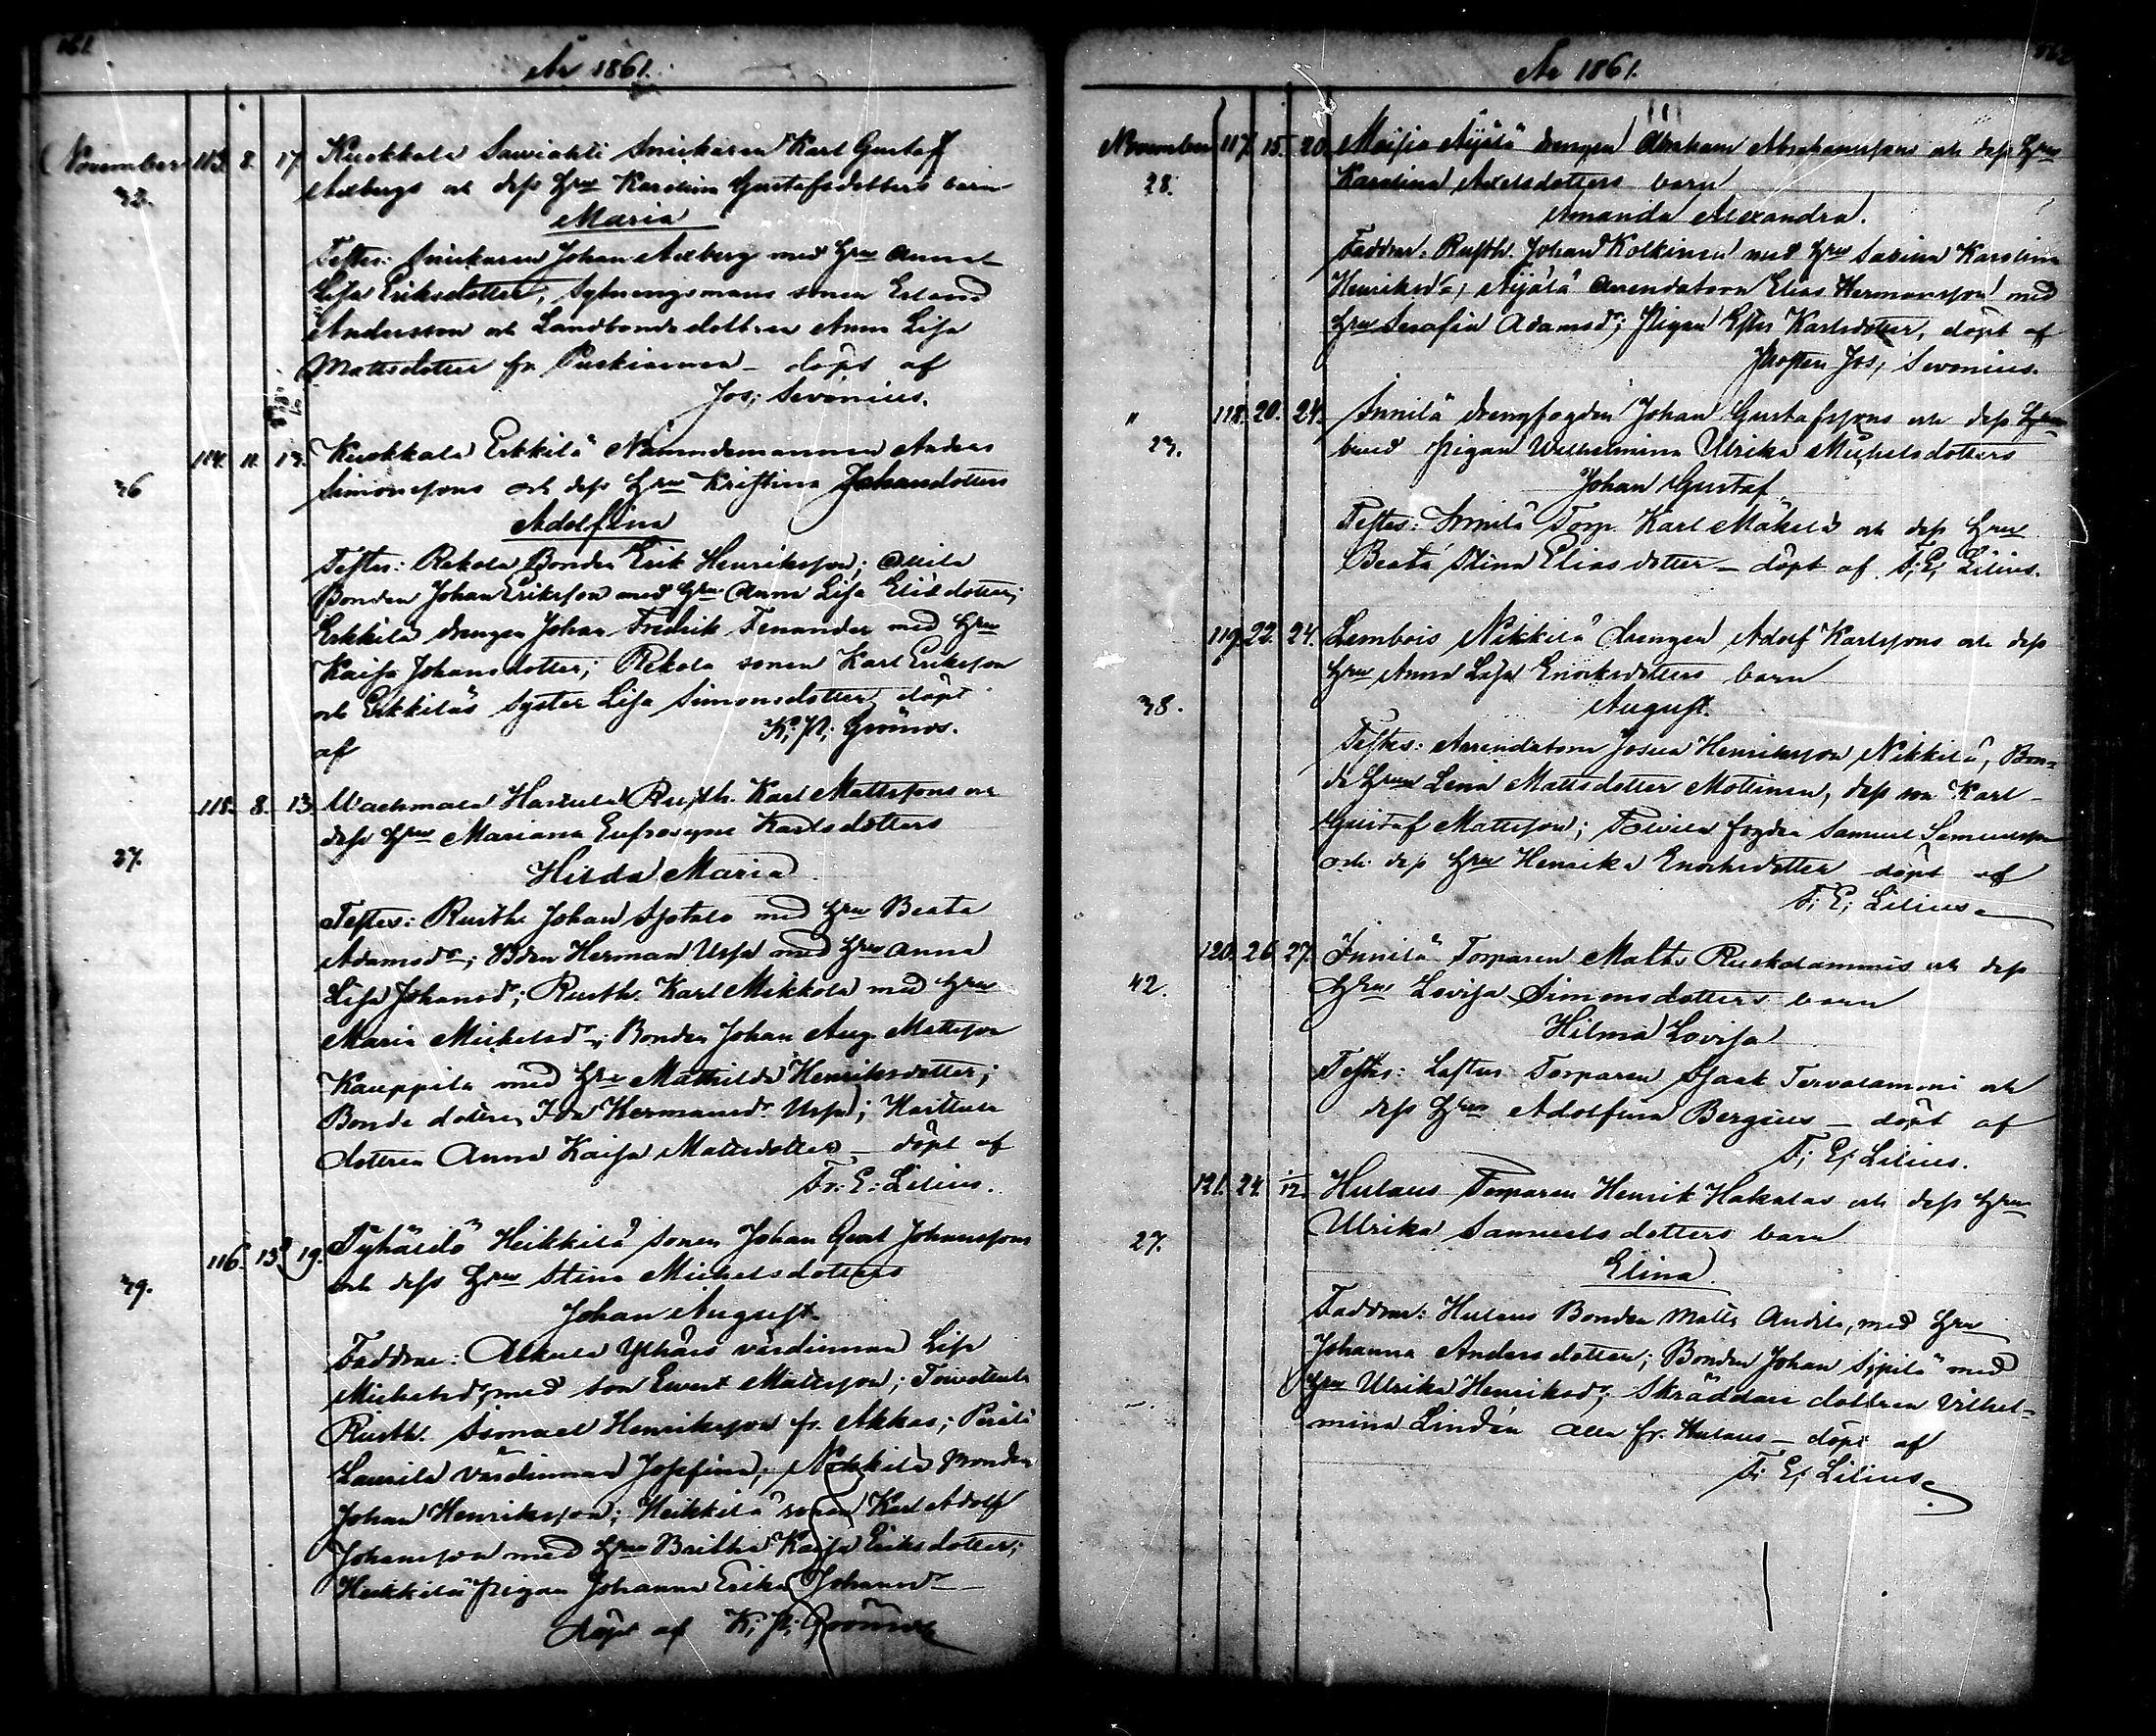 161.
År 1861.
November 113. 8. 17. Kuokkala Sawiahti Snickaren Karl Gustaf
32. Axbergs och dess Hru Karolina Gustafsdotters barn
Maria
Testes: Snickaren Johan Axberg med Hru Anna
Lisa Eriksdotter, Sytningsmans sonen Erland
Andersson och Landbonde dottren Anna Lisa
Mattsdotter fr. döpt af
Jos; Sevonius.
114. 11. 13. Kuokkala Erkkilä Nämndemannen Anders
36 Simonssons och dess Hru Kristina Johansdotters
Adolfina
Testes: Rekola Bonden Erik Henriksson; Anila
Bonden Johan Eriksson med Hru Anna Lisa Eliædotter;
Erkkilä drengen Johan Fredrik Fenander med Hru
Kaisa Johansdotter; Rekola sonen Karl Eriksson
och Erkkiläs syster Lisa Simonsdotter, döpt
af K; P; Grönros.
115. 8. 13. Hartula Rusth. Karl Mattssons och
27. dess Hru Mariana Eufrosyne Karlsdotters
Hilda Maria
Testes: Rusth. Johan Isotalo med Hru Beata
Adamsdr; Bden Herman Urja med Hru Anna
Lisa Johansd; Rusth. Karl Mikkola med Hru
Maria Michelsd; Bonden Johan Aug. Mattsson
Kauppila med Hru Mathilda Henriksdotter;
Bonde dottren Ida Hermansd. Urja; Hartula
dottren Anna Kaisa Mattsdotter – döpt af
Fr: E: Lilius.
116. 13. 19. Heikkilä sonen Johan Johanssons
39. och dess Hru Stina Michelsdotters
Johan August
Faddrar: Alkula värdinnan Lisa
Michelsd, med son Ewert Mattsson;
Rusth. Samuel Henriksson fr. Akkas;
Laurila värdinnan Josefina; Nokkila Bonden
Johan Henriksson; Heikkilä sonen Karl Adolf
Johansson med Hru Britha Kaisa Eriksdotter;
Heikkilä pigan Johanna Erika Johansd
döpt af K; P; Grönros
År 1861.
November 117. 15. 20. Moisio Äijälä drengen Abraham Abrahamssons och dess Hru
28. Karolina Axelsdotters barn
Amanda Alexandra.
Faddrar: Rusth. Johan Kolkinen med Hru Sabina Karolina
Henriksdr, Äijälä Arrendatorn Elias Hermansson med
Hru Serafia Adamsd; Pigan Ester Karlsdotter, döpt af
Prosten Jos; Sevonius.
" 118. 20. 24. Innilä drengfogden Johan Gustafssons och dess
23. pigan Wilhelmina Ulrika Michelsdotters
Johan Gustaf
Testes: Innilä Torp. Karl Mäkelä och dess Hru
Beata Stina Eliasdotter – döpt af F; E; Lilius.
119. 22. 24. Lembois Nikkilä drengen Adolf Karlssons och dess
38. Hru Anna Lisa Enoksdotters barn
August.
Testes: Arrendatorn Josua Henriksson Nikkilä, Bon-
de Hru Lena Mattsdotter Mottinen, dess son Karl
Gustaf Mattsson; fogden Samuel Samuelsson
och dess Hru Henrika Enoksdotter döpt af
F; E; Lilius.
120. 26 27. Innilä Torparen Matts Ruskolammis och dess
42. Hru Lovisa Simonsdotters barn
Hilma Lovisa
Testes: Torparen Isaak Tervalammi och
dess Hru Adolfina Bergius – döpt af
F; E; Lilius.
121. 24. 1/12. Hulaus Torparen Henrik Hakalas och dess Hru
27. Ulrika Samuelsdotters barn
Elina.
Faddrar: Hulaus Bonden Matts Andila, med Hru
Johanna Andersdotter; Bonden Johan Sipilä med
Hru Ulrika Henriksd; Skräddare dottren Vilhel-
mina Lindén alla fr. Hulaus – döpt af
F: E; Lilius.